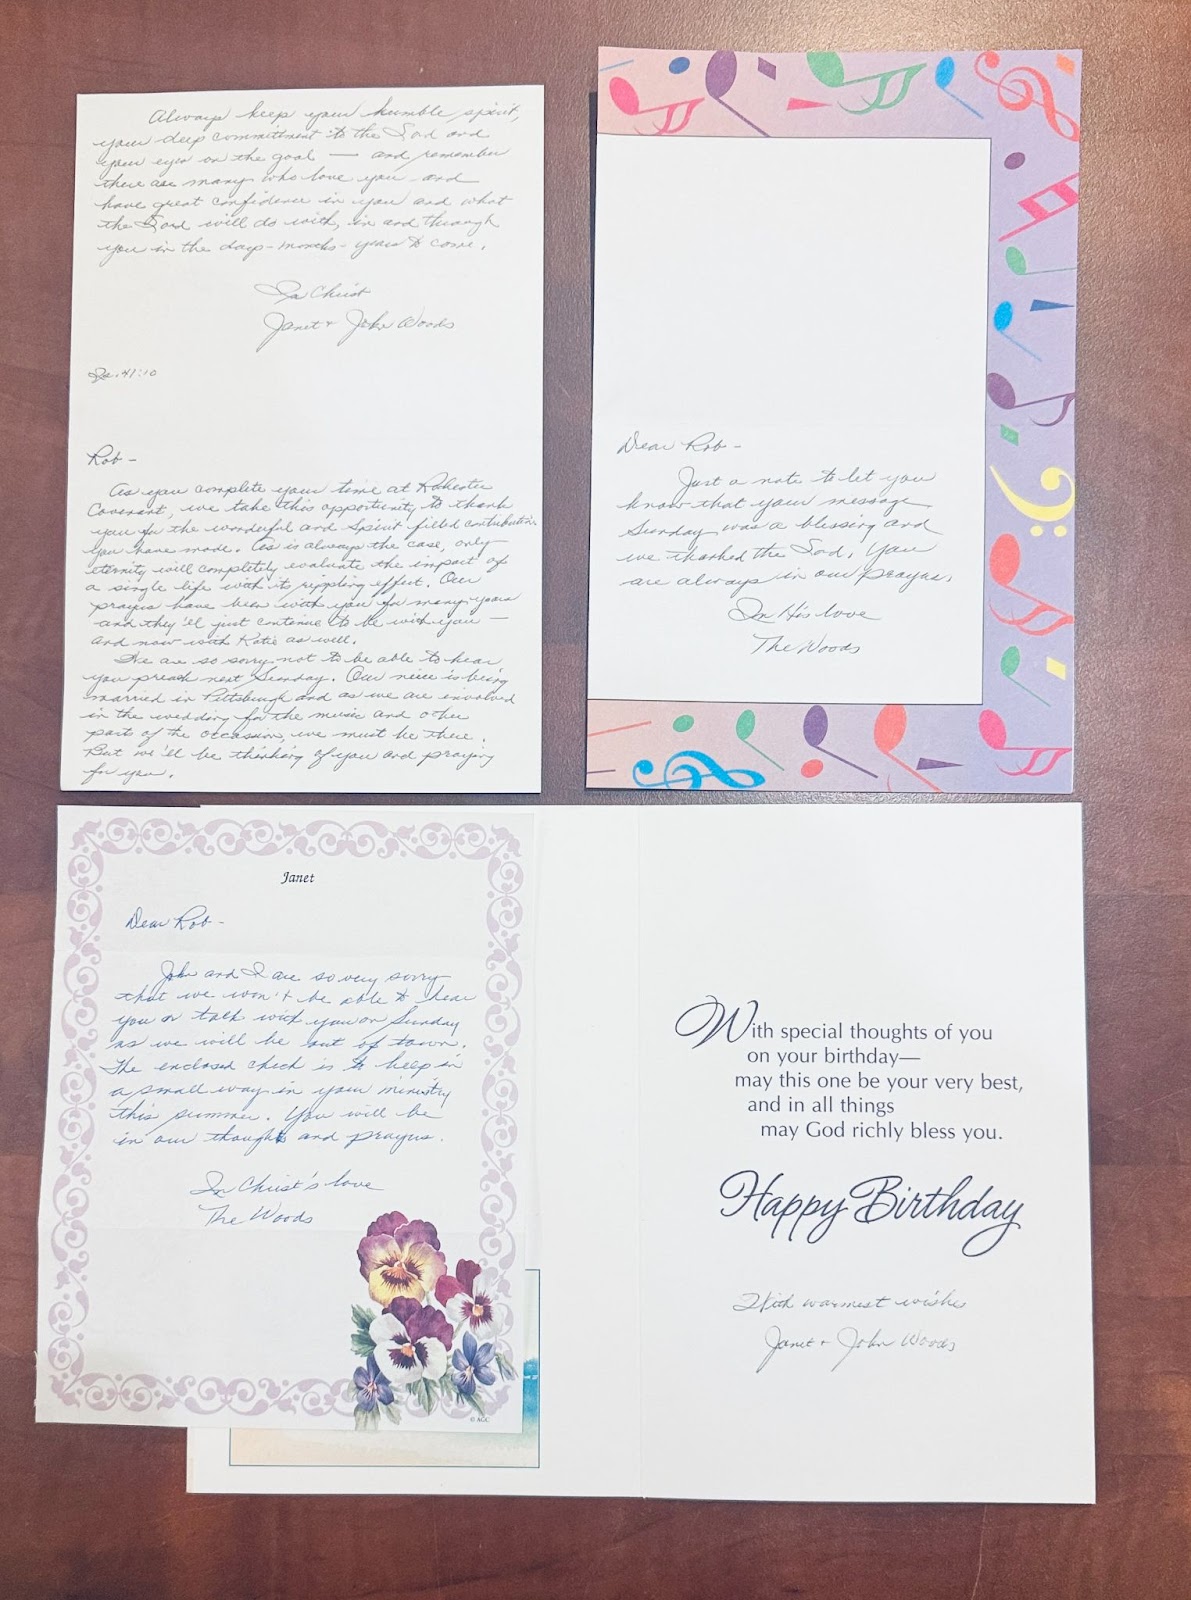 Always keep your humble spirit,
your deep commitment to the Lord and
your eyes on the goal — and remember
there are many who love you and
have great confidence in you and what
the Lord will do with, in and through
you in the days - months - years to come.
In Christ
Janet + John Woods
Is. 41:10
Rob -
As you complete your time at Rochester
Covenant, we take this opportunity to thank
you for the wonderful and Spirit filled contribution
you have made. As is always the case, only
eternity will completely evaluate the impact of
a single life with its rippling effect. Our
prayers have been with you for many years
and they'll just continue to be with you —
and now with Katie as well.
We are so sorry not to be able to hear
you preach next Sunday. Our niece is being
married in Pittsburgh and as we are involved
in the wedding for the music and other
parts of the occasion, we must be there.
But we'll be thinking of you and praying
for you.
Dear Rob -
Just a note to let you
know that your message
Sunday was a blessing and
we thanked the Lord. You
are always in our prayers.
In His love
The Woods
Janet
Dear Rob -
John and I are so very sorry
that we won't be able to hear
you or talk with you on Sunday
as we will be out of town.
The enclosed check is to help in
a small way in your ministry
this summer. You will be
in our thoughts and prayers.
In Christ's love
The Woods
© AGC
With special thoughts of you
on your birthday—
may this one be your very best,
and in all things
may God richly bless you.
Happy Birthday
With warmest wishes
Janet + John Woods